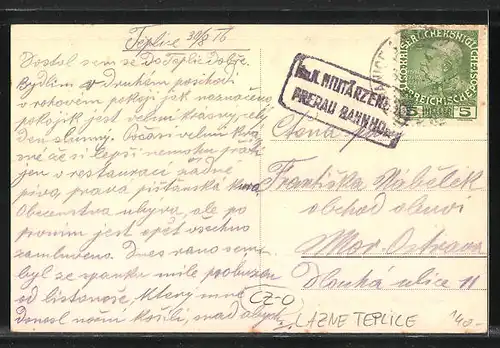 Teplice 30/8 16
Dostal sem se do Teplic dobře.
Bydlím v druhém poschodí
v rohovém pokoji jak naznačeno,
pokojík jest velmi krásný, celý
den slunný. Počasí velmi krás
né
v restauraci žádné
piva, pravá píšťanská
Obecenstva ubývá, ale po
prvním jest opět všechno
zamluveno. Dnes ráno sem
byl ze spánku mile probuzen
od listonoše, který mně
donesl noční košili, snad abych
K.u.K. MILITÄRZENSUR
PRERAU BAHNHOF
KAISERLICHE KÖNIGLICHE ÖSTERREICHISCHE POST
5 HELLER 5
Ctěná paní
Františka Nábělek
obchod obuví
Mor. Ostrava
Dlouhá ulice 11
CZ-O
LAZNE TEPLICE
140-